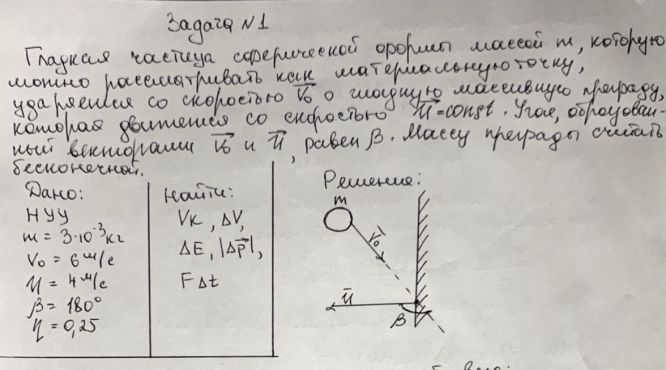 Задача N1
Гладкая частица сферической формы массой m, которую
можно рассматривать как материальную точку,
ударяется со скоростью V₀ о гладкую массивную преграду,
которая движется со скоростью U=const. Угол, образован-
ный векторами V₀ и U, равен β. Массу преграды считать
бесконечной.
Дано:
НУУ
m = 3·10⁻³кг
V₀ = 6 м/с
U = 4 м/с
β = 180°
η = 0,25
Найти:
Vк, ΔV,
ΔE, |Δp⃗|,
FΔt
Решение:
m
V₀
U
β